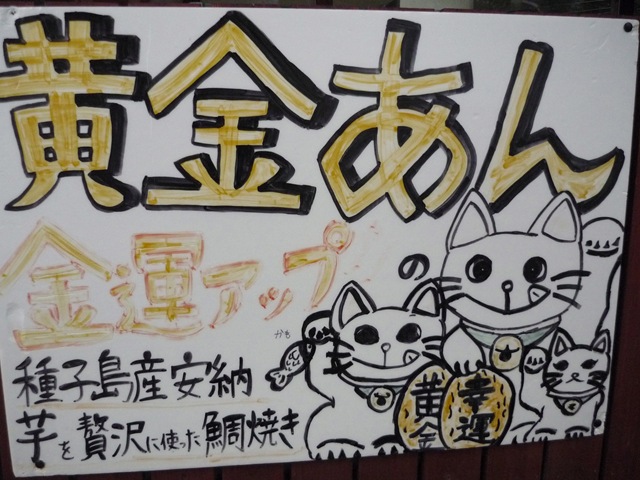 黄金あん
金運アップ
かも
の
種子島産安納
芋を贅沢に使った鯛焼き
黄金
幸運